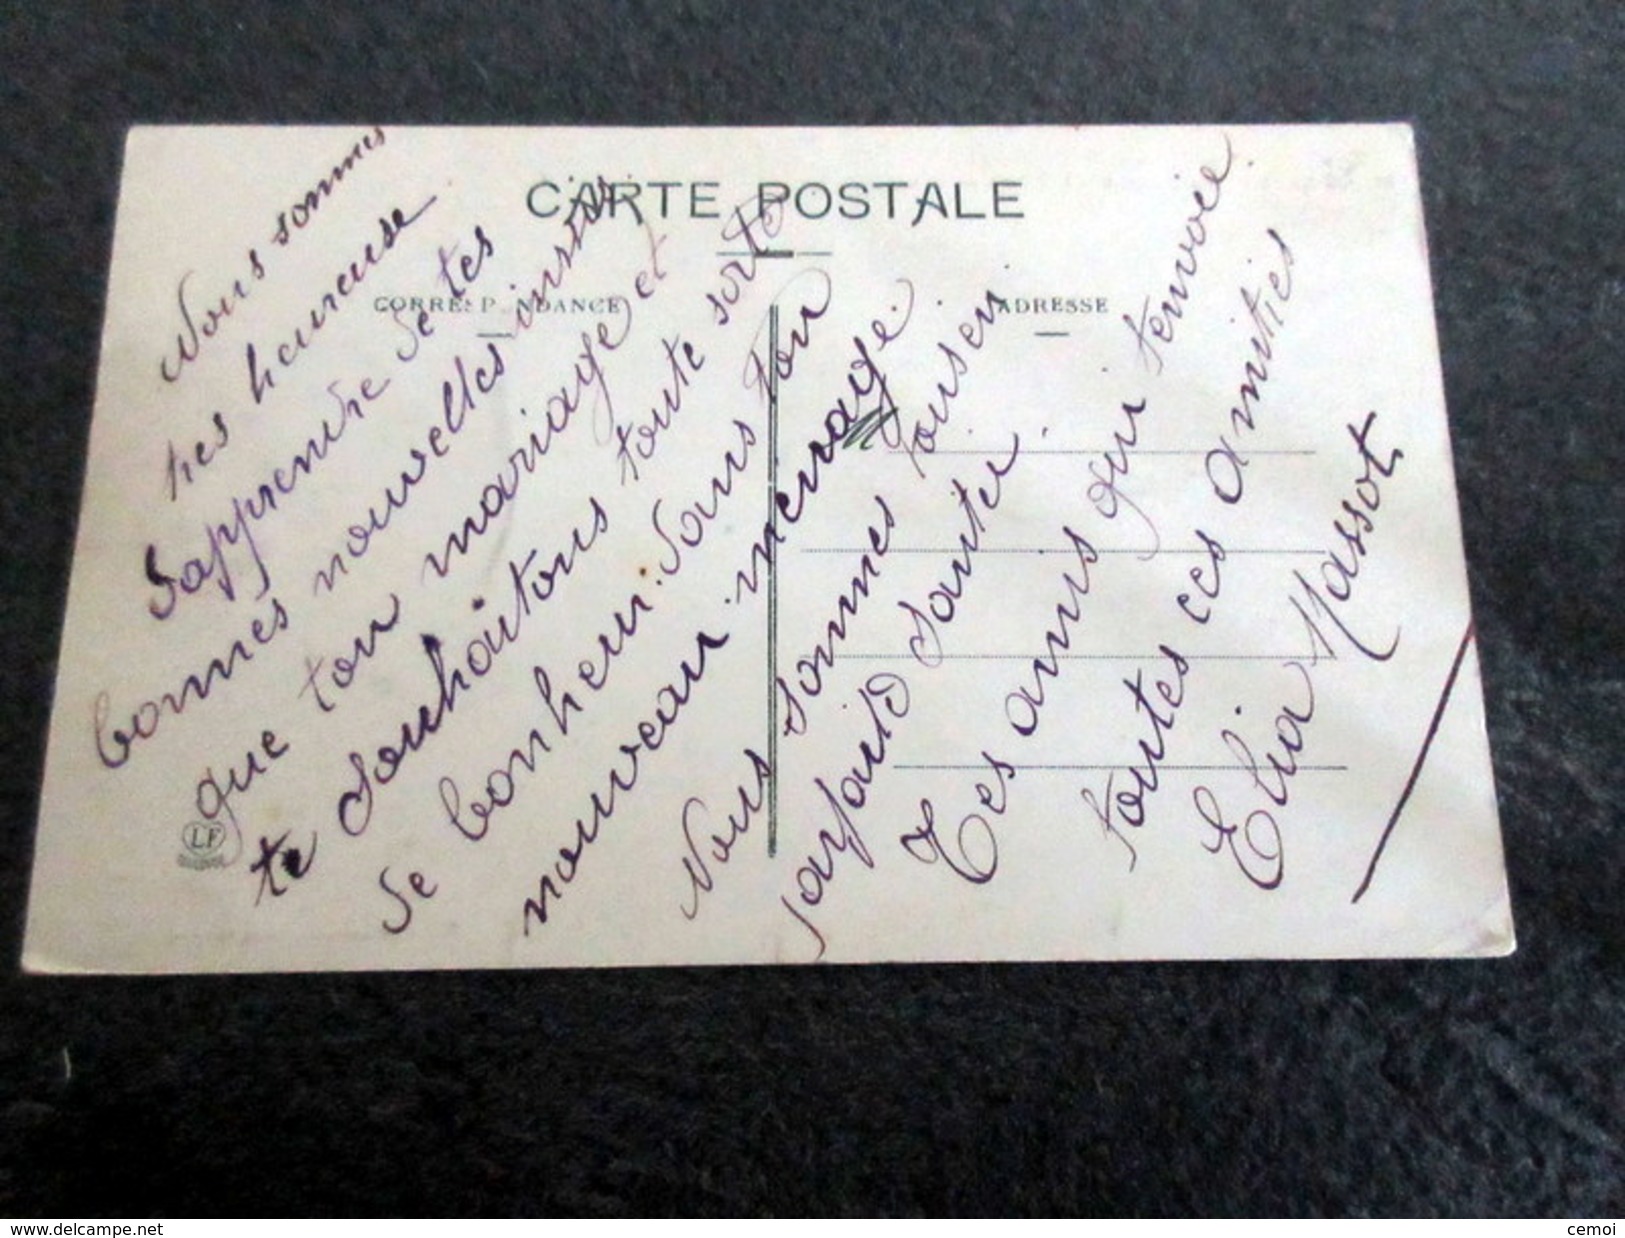 CARTE POSTALE
CORRESP NDANCE
ADRESSE
Nous sommes
tres heureuse
d'apprendre de tes
bonnes nouvelles insi
que ton mariage et
te souhaitons toute sorte
de bonheur. Dans ton
nouveau menage.
Nous sommes tous en
parfaite santer.
Tes amis qui tenvoie
toutes ces amities
Elia Massot
LF
www.delcampe.net
cemoi